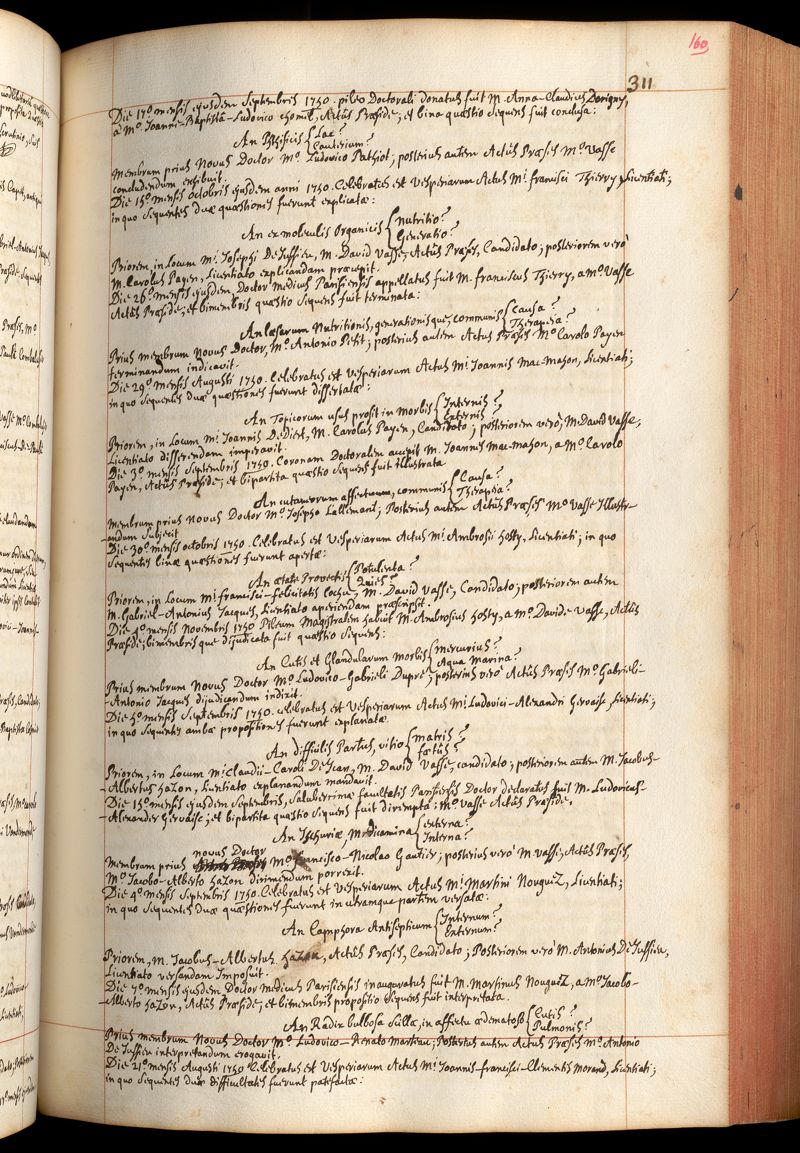 160
311
Die 17º mensis ejusdem Septembris 1750. pileo Doctorali donatus fuit M. Anna-Claudius Dorigny,
a Mº. Joanni-Baptistâ-Ludovico Chomel, Actûs Præside; et bina quæstio sequens fuit conclusa:
An Phthisicis { Lac?
Cauterium?
Membrum prius Novus Doctor Mº. Ludovico Pathiot; posterius autem Actûs Præses Mº. Vasse
concludendum exhibuit.
Die 15º mensis octobris ejusdem anni 1750. Celebratus est Vesperiarum Actus Mi. francisci Thierry, Licentiati;
in quo Sequentes duæ quæstiones fuerunt explicatæ:
An ex moleculis Organicis { Nutritio?
Generatio?
Priorem, in Locum Mi. Josephi De Jussieu, M. David Vasse, Actûs Præses, Candidato; posteriorem verò
M. Carolus Payen, Licentiato explicandam præcepit.
Die 26º mensis ejusdem, Doctor Medicus Parisiensis appellatus fuit M. franciscus Thierry, a Mº. Vasse
Actûs Præside; et bimembris quæstio sequens fuit terminata:
An læsarum Nutritionis, generationisque, communis { Causa?
Therapeia?
Prius membrum Novus Doctor, Mº. Antonio Petit; posterius autem Actus Præses Mº. Carolo Payen
terminandum indicavit.
Die 29º mensis Augusti 1750. Celebratus est Vesperiarum Actus Mi. Joannis Mac-mahon, Licentiati;
in quo Sequentes duæ quæstiones fuerunt dissertatæ:
An Topicorum usus prosit in morbis { Internis?
Externis?
Priorem, in Locum Mi. Joannis De Diest, M. Carolus Payen, Candidato; posteriorem verò, M. David Vasse,
Licentiato differendam imperavit.
Die 3º mensis Septembris 1750. Coronam Doctoralem accepit M. Joannes Mac-mahon, a Mº. Carolo
Payen, Actûs Præside; et bipartita quæstio Sequens fuit illustrata
An cutanearum affectionum, communis { Causa?
Therapeia?
Membrum prius Novus Doctor Mº. Josepho Lallemant; Posterius autem Actûs Præses Mº. Vasse Illustr-
andum Subjecit
Die 30º mensis octobris 1750. Celebratus est Vesperiarum Actus Mi. Ambrosii hosty, Licentiati; in quo
Sequentes binæ quæstiones fuerunt apertæ:
An ætate Provectis { Potulenta?
Quies?
Priorem, in Locum Mi. francisci-felicitatis Cochu, M. David Vasse, Candidato; posteriorem autem
M. Gabriel-Antonius Jacques, Licentiato aperiendam præscripsit.
Die 4º mensis Novembris 1750 Pileum Magistralem habuit M. Ambrosius hosty, a Mº. Davide Vasse, Actûs
Præside; bimembris que dijudicata fuit quæstio Sequens:
An Cutis et Glandularum morbis { mercurius?
Aqua Marina?
Prius membrum Novus Doctor Mº. Ludovico-Gabrieli Dupré; posterius verò Actûs Præses Mº. Gabrieli-
-Antonio Jacques dijudicandum indixit.
Die 5º mensis Septembris 1750. celebratus est Vesperiarum Actus Mi. Ludovici-Alexandri Gervaise, Licentiati;
in quo Sequentes ambæ propositiones fuerunt explanatæ.
An difficilis Partûs, vitio { matris?
fœtûs?
Priorem, in Locum Mi. Claudii-Caroli De Jean, M. David Vasse, candidato; posteriorem autem M. Jacobus-
Albertus hazon, Licentiato explanandum mandavit.
Die 15º mensis ejusdem Septembris, Saluberrimæ facultatis Parisiensis Doctor declaratus fuit M. Ludovicus-
-Alexander Gervaise; et bipartita quæstio Sequens fuit dirempta: Mº. Vasse Actûs Præside.
An Ischuriæ, Medicamina { externa?
Interna?
novus Doctor
Membrum prius Mº. francisco-Nicolao Gautier; posterius verò M. Vasse, Actûs Præses,
Mº. Jacobo-Alberto hazon dirimendum porrexit.
Die 4º mensis Septembris 1750. Celebratus est Vesperiarum Actus Mi. Martini Nouguéz, Licentiati;
in quo Sequentes duæ quæstiones fuerunt in utramque partem versatæ:
An Camphora Antisepticum { Internum?
Externum?
Priorem, M. Jacobus-Albertus hazon, Actûs Præses, Candidato; Posteriorem verò M. Antonius De Jussieu,
Licentiato versandam Imposuit.
Die 7º mensis ejusdem, Doctor Medicus Parisiensis inauguratus fuit M. Martinus Nouguéz, a Mº. Jacobo-
-Alberto hazon, Actûs Præside; et bimembris propositio Sequens fuit interpretata.
An Radix bulbosa Scillæ, in affectu œdematoso { Cutis?
Pulmonis?
Prius membrum Novus Doctor Mº. Ludovico-Renato marteau; Posterius autem Actus Præses Mº. Antonio
De Jussieu interpretandum erogavit.
Die 21º mensis Augusti 1750 Celebratus est Vesperiarum Actus Mi. Joannis-francisci-Clementis Morand, Licentiati;
in quo Sequentes duæ difficultates fuerunt patefactæ: